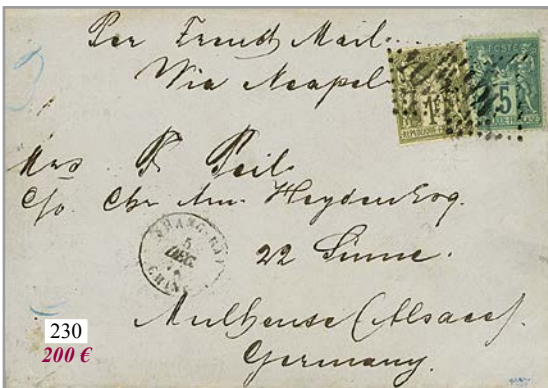 Per French Mail
Via Neapel
POSTE
1F
REPUBLIQUE
POSTE
5
QUE FRANÇAISE
Mrs P. Peil.
c/o Chr. Am. Heyden Esq.
SHANG-HAI
5
DEC.
CHINE
22 Sinne.
Mulhouse (Alsace).
Germany.
230
200 €